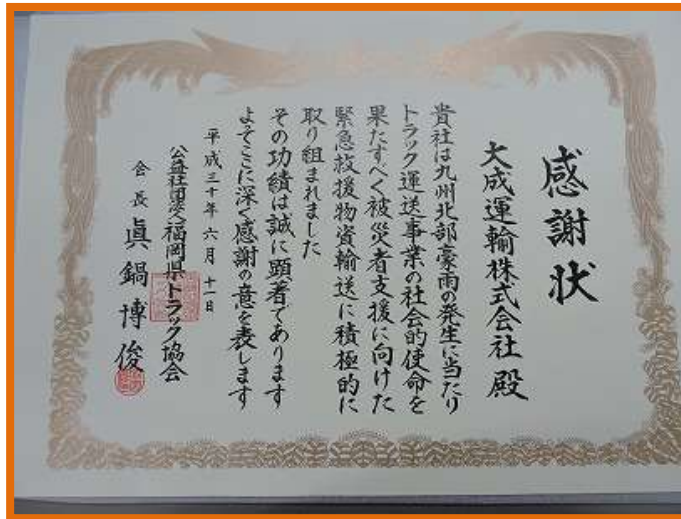 感謝状
大成運輸株式会社 殿
貴社は九州北部豪雨の発生に当たり
トラック運送事業の社会的使命を
果たすべく被災者支援に向けた
緊急救援物資輸送に積極的に
取り組まれました
その功績は誠に顕著であります
よってここに深く感謝の意を表します
平成三十年六月十一日
公益社団法人福岡県トラック協会
会長 眞鍋博俊